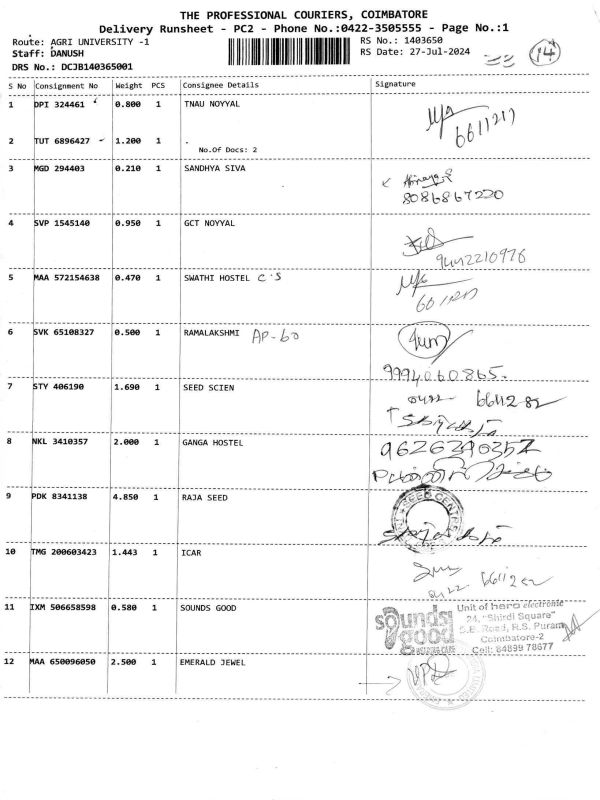 THE PROFESSIONAL COURIERS, COIMBATORE
Delivery Runsheet - PC2 - Phone No.:0422-3505555 - Page No.:1
Route: AGRI UNIVERSITY -1
RS No.: 1403650
14
Staff: DANUSH
RS Date: 27-Jul-2024
DRS No.: DCJB140365001
S No Consignment No Weight PCS Consignee Details Signature
1 DPI 324461 0.800 1 TNAU NOYYAL
6611217
2 TUT 6896427 1.200 1 .
No.Of Docs: 2
3 MGD 294403 0.210 1 SANDHYA SIVA
8086867220
4 SVP 1545140 0.950 1 GCT NOYYAL
9442210976
5 MAA 572154638 0.470 1 SWATHI HOSTEL C.S
6 SVK 65108327 0.500 1 RAMALAKSHMI AP-60
9994060865.
7 STY 406190 1.690 1 SEED SCIEN
0422 6611282
8 NKL 3410357 2.000 1 GANGA HOSTEL
9626290352
9 PDK 8341138 4.850 1 RAJA SEED
SEED CENTRE
10 TMG 200603423 1.443 1 ICAR
0422 6611282
11 IXM 506658598 0.580 1 SOUNDS GOOD
sounds good
Unit of hero electronic
24, "Shirdi Square"
D.B. Road, R.S. Puram
Coimbatore-2
Cell: 84899 78677
12 MAA 650096050 2.500 1 EMERALD JEWEL